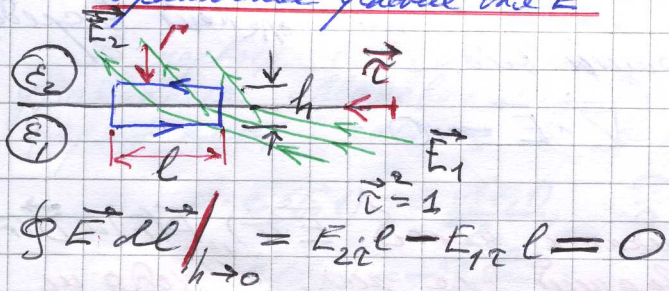 E⃗₂ Γ τ⃗
ε₂ h
ε₁ E⃗₁
l τ⃗² = 1
∮ E⃗ dl⃗ |ₕ→₀ = E₂τ l − E₁τ l = 0